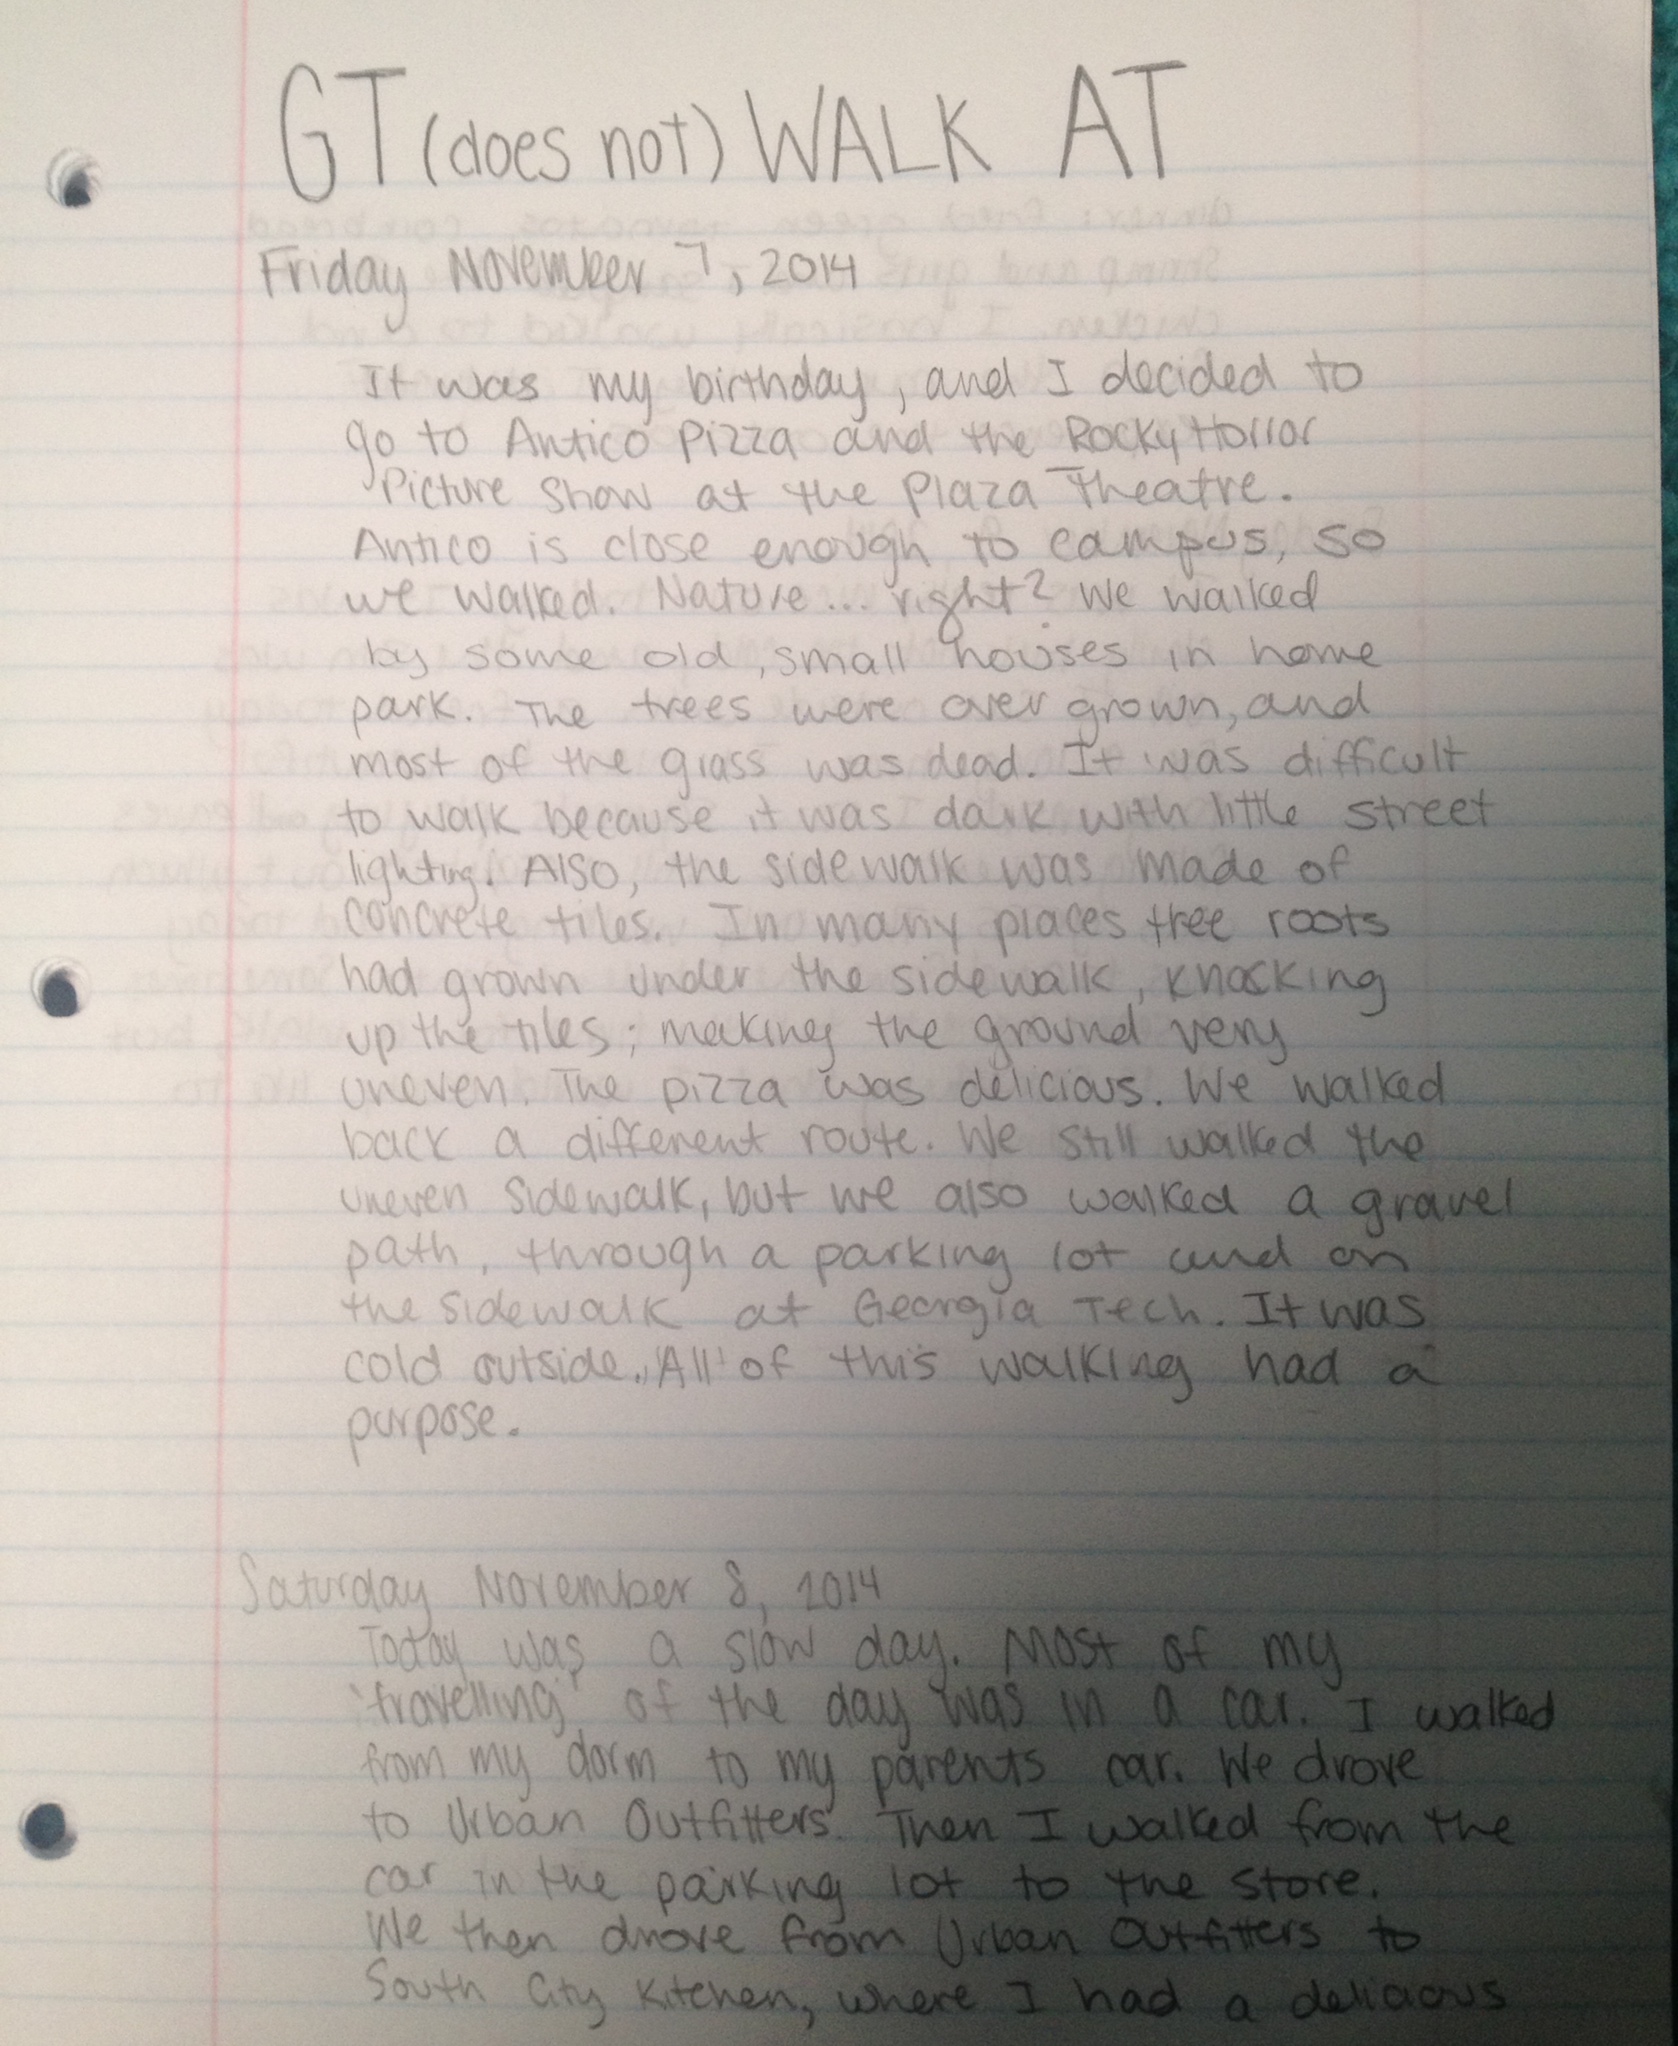 GT (does not) WALK AT
Friday November 7, 2014
It was my birthday, and I decided to
go to Antico Pizza and the Rocky Horror
Picture Show at the Plaza Theatre.
Antico is close enough to campus, so
we walked. Nature... right? We walked
by some old, small houses in home
park. The trees were over grown, and
most of the grass was dead. It was difficult
to walk because it was dark with little street
lighting. Also, the sidewalk was made of
concrete tiles. In many places tree roots
had grown under the sidewalk, knocking
up the tiles; making the ground very
uneven. The pizza was delicious. We walked
back a different route. We still walked the
uneven sidewalk, but we also walked a gravel
path, through a parking lot and on
the sidewalk at Georgia Tech. It was
cold outside. All of this walking had a
purpose.
Saturday November 8, 2014
Today was a slow day. Most of my
'travelling' of the day was in a car. I walked
from my dorm to my parents car. We drove
to Urban Outfitters. Then I walked from the
car in the parking lot to the store.
We then drove from Urban Outfitters to
South City Kitchen, where I had a delicious